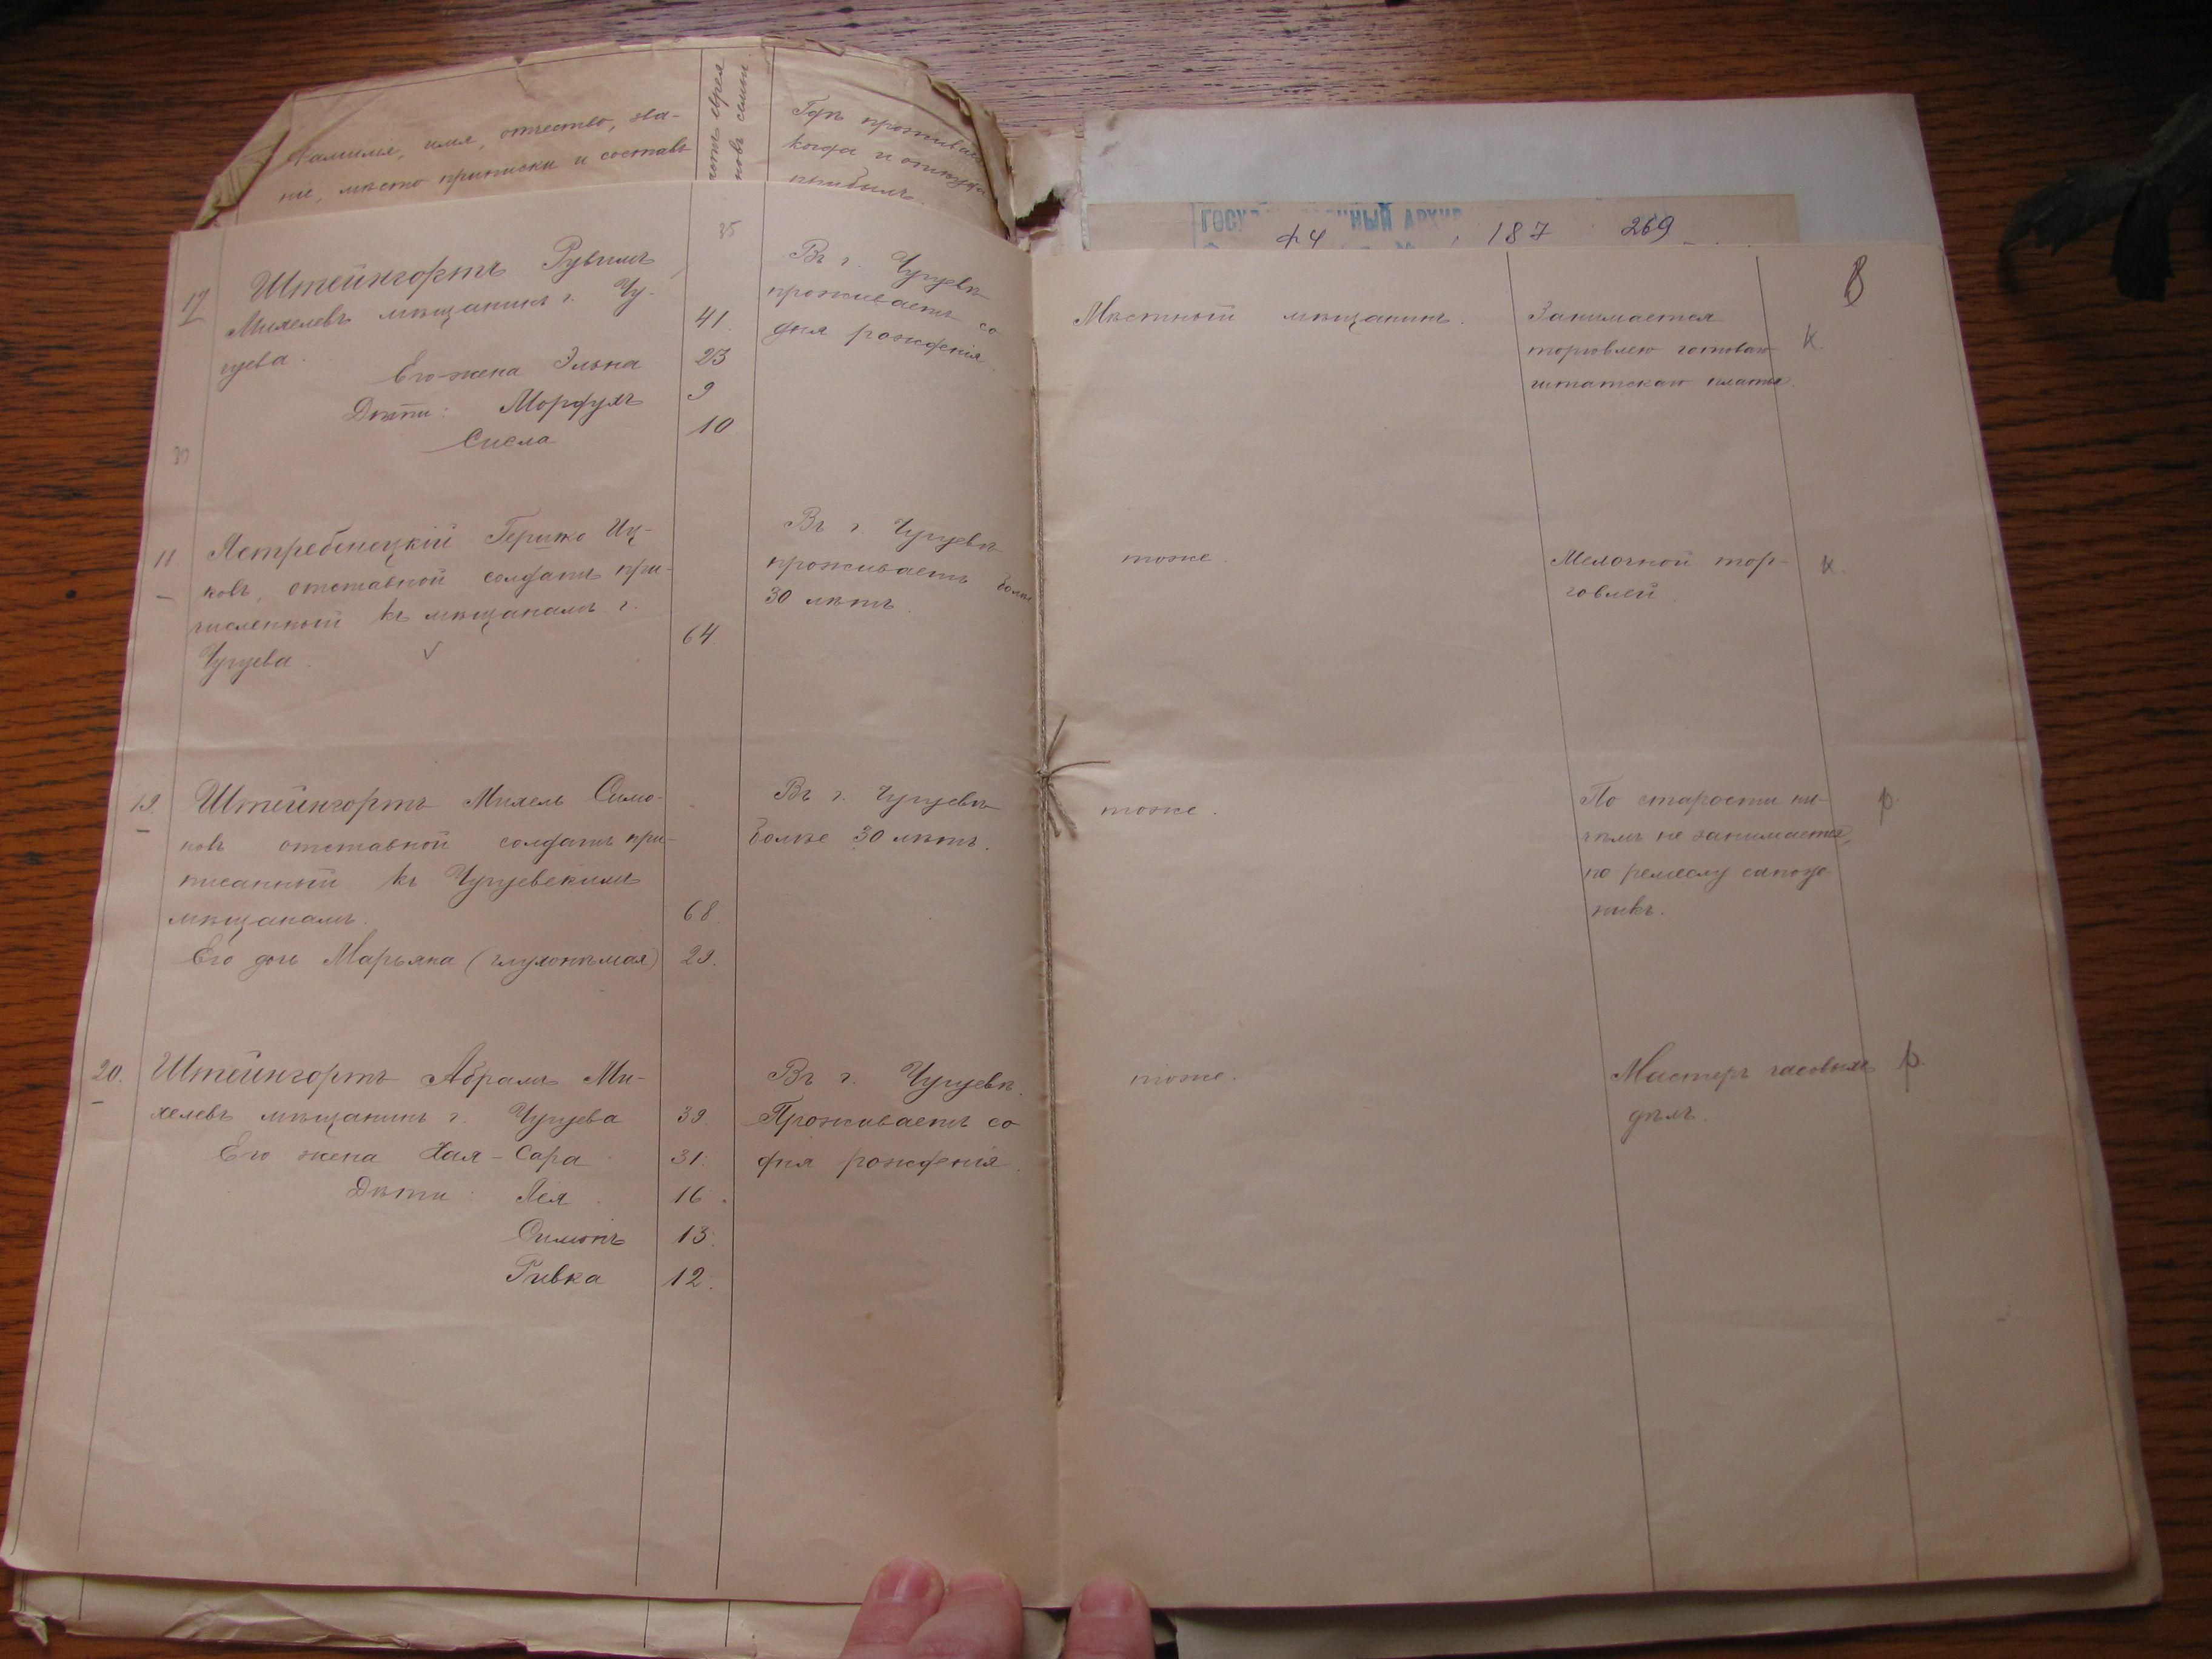 Фамилія, имя, отчество, зва-
ніе, мѣсто приписки и составъ
новъ семьи
Гдѣ проживаетъ
когда и откуда
прибылъ.
ГОСУ ННЫЙ АРХИВ
ф4 187 269
8
35
17
Штейнгортъ Рувимъ
Михелевъ мѣщанинъ г. Чу-
гуева.
41.
Его жена Элька 23
Дѣти: Мордухъ 9
Сисла 10
Въ г. Чугуевѣ
проживаетъ со
дня рожденія
Мѣстный мѣщанинъ.
Занимается
торговлею готоваго
штатскаго платья.
К
18
Ястребенецкій Гершко Иц-
ковъ, отставной солдатъ при-
численный къ мѣщанамъ г.
Чугуева.
64
Въ г. Чугуевѣ
проживаетъ более
30 лѣтъ
тоже.
Мелочной тор-
говлей
К.
19
Штейнгортъ Михель Симо-
новъ отставной солдатъ при-
писанный къ Чугуевскимъ
мѣщанамъ. 68.
Его дочь Марьяна (глухонѣмая) 29.
Въ г. Чугуевѣ
более 30 лѣтъ.
тоже.
По старости ни-
чѣмъ не занимается,
по ремеслу сапож-
никъ.
р.
20.
Штейнгортъ Абрамъ Ми-
хелевъ мѣщанинъ г. Чугуева 39.
Его жена Хая-Сара 31.
Дѣти: Лея 16.
Симонъ 13.
Ривка 12.
Въ г. Чугуевѣ.
Проживаетъ со
дня рожденія.
тоже.
Мастеръ часовыхъ
дѣлъ.
р.